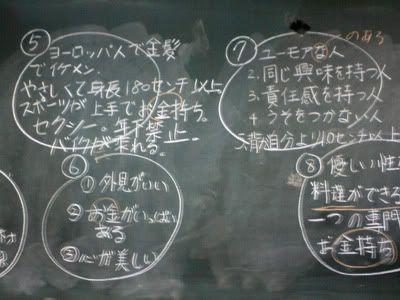 ⑤
ヨーロッパ人で金髪
でイケメン.
やさしくて身長180センチ以上
スポーツが上手でお金持ち。
セクシー。年下禁止
バイクが乗れる。
⑥
①外見がいい
②お金がいっぱい
ある
③心が美しい
⑦
のある
ユーモアな人
2.同じ興味を持つ人
3.責任感を持つ人
4.うそをつかない人
5.背が自分より10センチ以上
⑧
優しい性
料理ができる
一つの専門
お金持ち